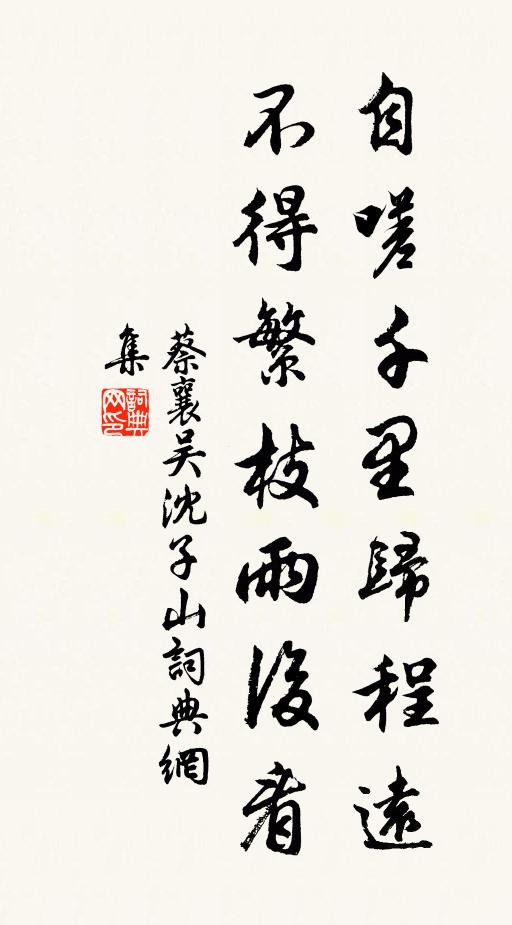 自嗟千里歸程遠
不得繁枝雨後看
蔡襄吴沈子山詞典網
集
詞典网印